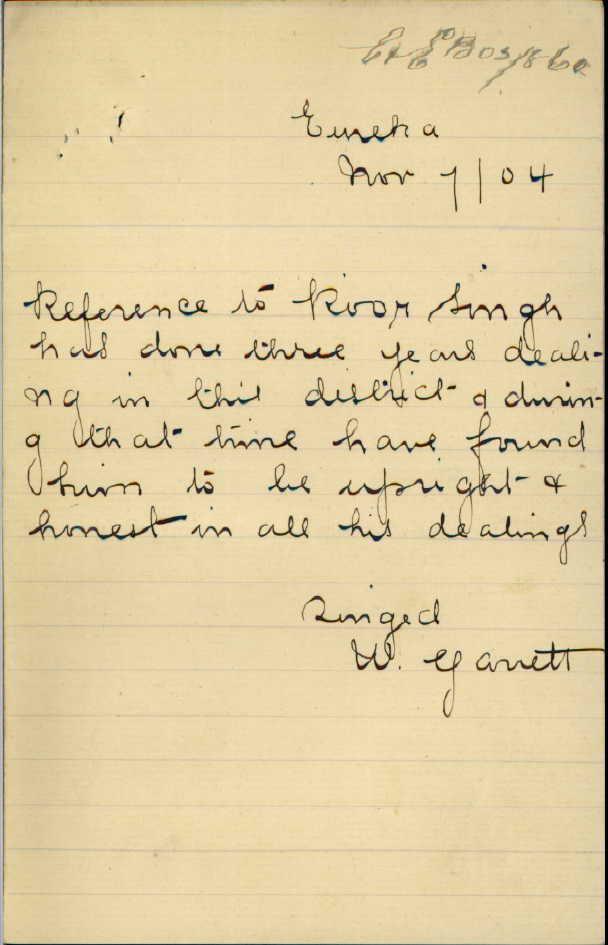 Eureka
Nov 7/04
Reference to Kooy Singh
had done three years deali-
ng in this district & durin-
g that time have found
him to be upright &
honest in all his dealings
Singed
W. Garrett